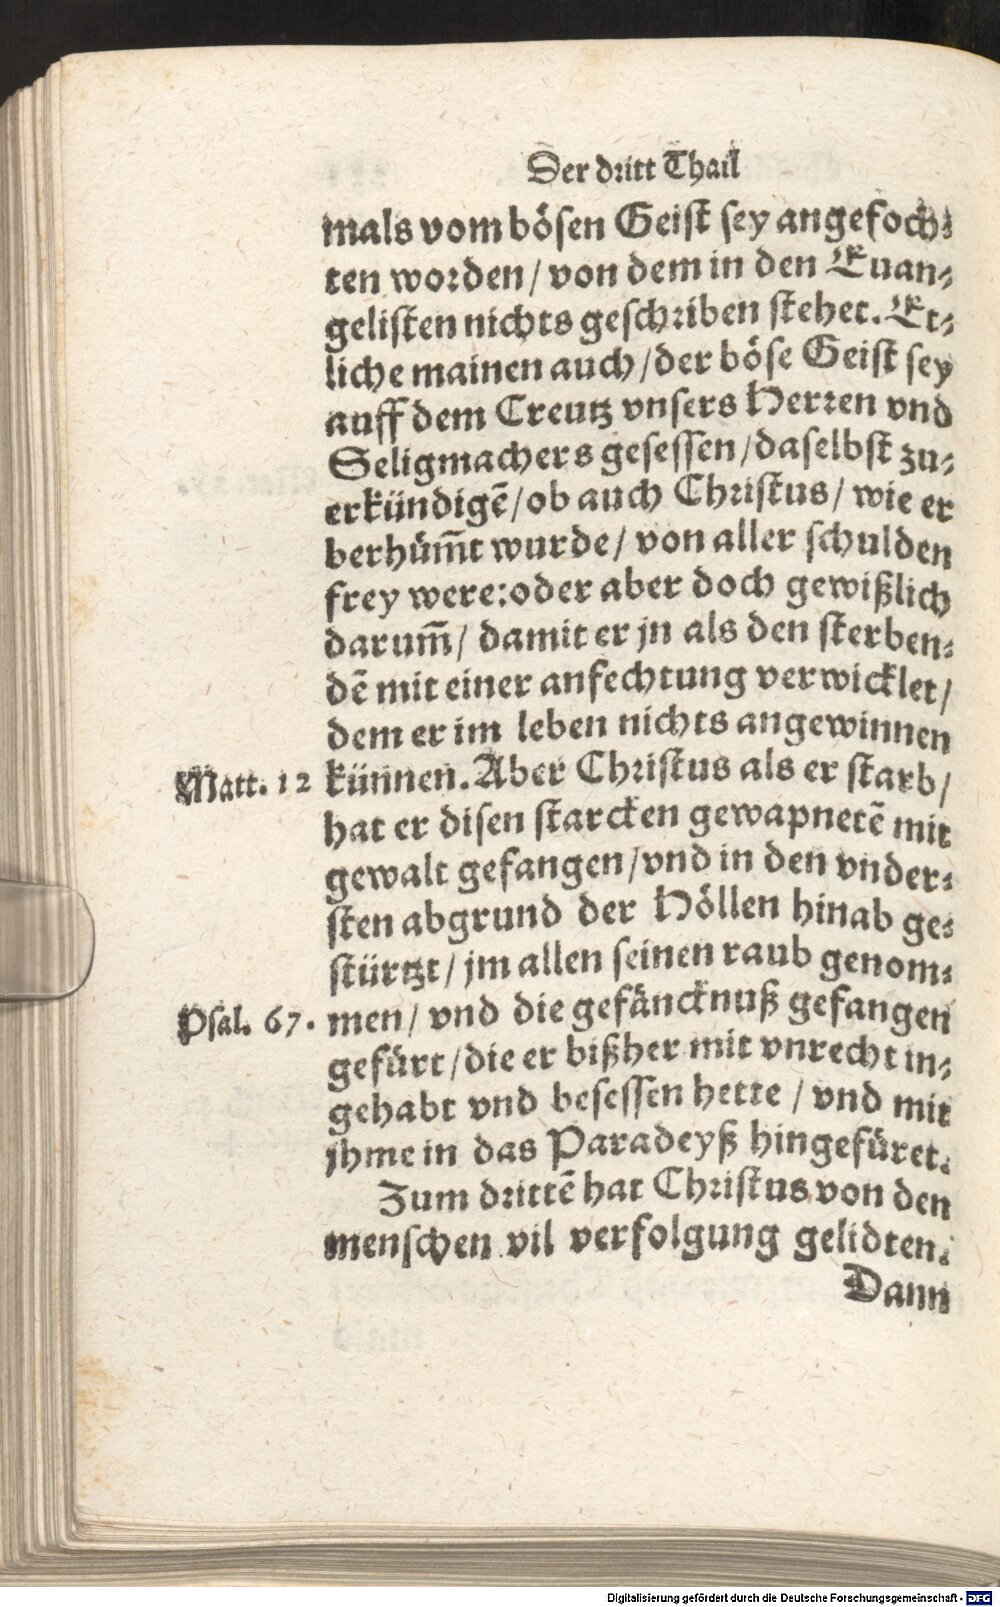 Der dritt Thail
mals vom bösen Geist sey angefoch-
ten worden / von dem in den Euan-
gelisten nichts geschriben stehet. Et-
liche mainen auch / der böse Geist sey
auff dem Creutz vnsers Herren vnd
Seligmachers gesessen / daselbst zu-
erkündigē / ob auch Christus / wie er
berhüm̄t wurde / von aller schulden
frey were: oder aber doch gewißlich
darum̄ / damit er jn als den sterben-
dē mit einer anfechtung verwicklet /
dem er im leben nichts angewinnen
Matt. 12 künnen. Aber Christus als er starb /
hat er disen starcken gewapnetē mit
gewalt gefangen / vnd in den vnder-
sten abgrund der Höllen hinab ge-
stürtzt / jm allen seinen raub genom-
Psal. 67. men / vnd die gefäncknuß gefangen
gefürt / die er bißher mit vnrecht in-
gehabt vnd besessen hette / vnd mit
jhme in das Paradeyß hingefüret.
Zum drittē hat Christus von den
menschen vil verfolgung gelidten.
Dann
Digitalisierung gefördert durch die Deutsche Forschungsgemeinschaft - DFG